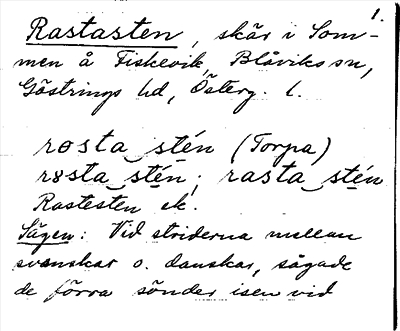 1.
Rastasten, skär i Som-
men å Fiskevik, Blåviks sn,
Göstrings hd, Österg. l.
rosta stén (Torpa)
rosta stén; rasta stén
Rastesten ek.
Sägen: Vid striderna mellan
svenskar o. danskar, sågade
de förra sönder isen vid